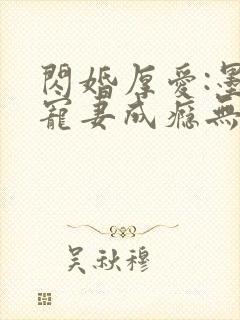 閃婚厚愛:墨
寵妻成癮無
吴秋穆